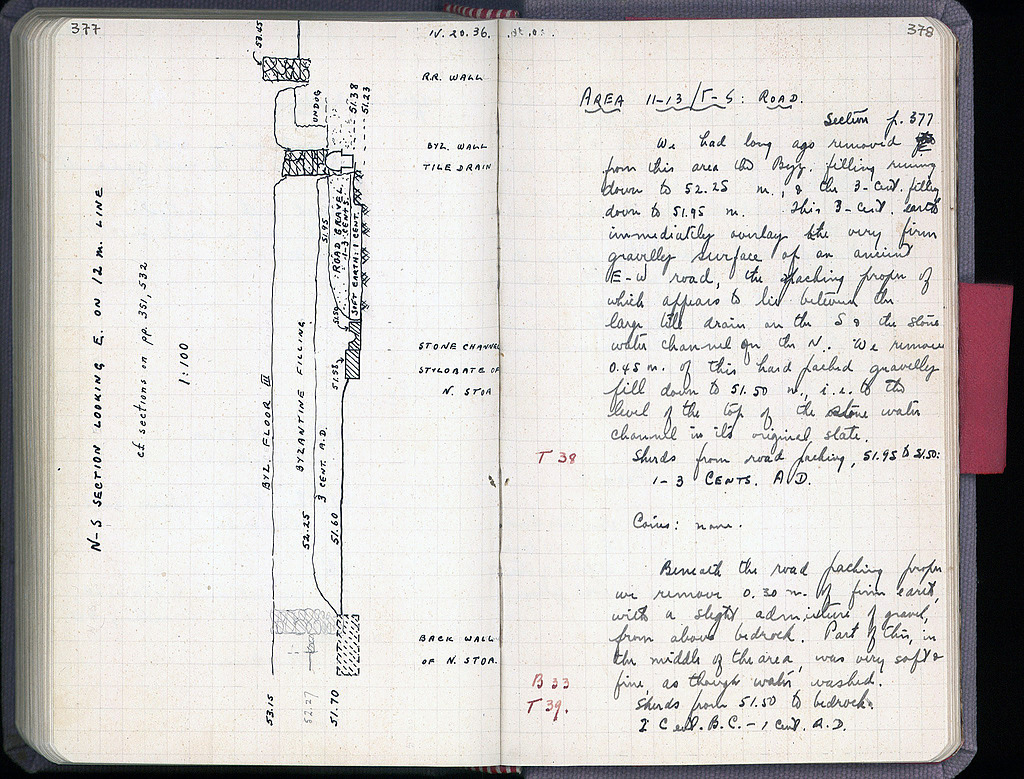 377
IV. 20. 36.
53.65
R.R. WALL
UNDUG
51.38
51.23
BYZ. WALL
TILE DRAIN
N-S SECTION LOOKING E. ON 12 m. LINE
cf. sections on pp. 351, 532
1:100
BYZ. FLOOR III
BYZANTINE FILLING
3 CENT. A.D.
51.95
ROAD GRAVEL
1-3 CENTS.
SOFT EARTH: 1 CENT.
51.50
STONE CHANNEL
51.58
STYLOBATE OF
N. STOA
52.25
51.60
BACK WALL
OF N. STOA.
53.15
52.27
51.70
378
AREA 11-13/Γ-S: ROAD.
Section p. 377
We had long ago removed
from this area the Byz. filling running
down to 52.25 m., & the 3-cent. filling
down to 51.95 m. This 3-cent. earth
immediately overlay the very firm
gravelly surface of an ancient
E-W road, the packing proper of
which appears to lie between the
large tile drain on the S & the stone
water channel on the N. We remove
0.45 m. of this hard packed gravelly
fill down to 51.50 m., i.e. to the
level of the top of the stone water
channel in its original state.
T 38
Sherds from road packing, 51.95 to 51.50:
1-3 CENTS. A.D.
Coins: none.
Beneath the road packing proper
we remove 0.30 m. of firm earth,
with a slight admixture of gravel,
from above bedrock. Part of this, in
the middle of the area, was very soft &
fine, as though water washed.
B 33
T 39.
Sherds from 51.50 to bedrock:
2 Cent. B.C. - 1 cent. A.D.